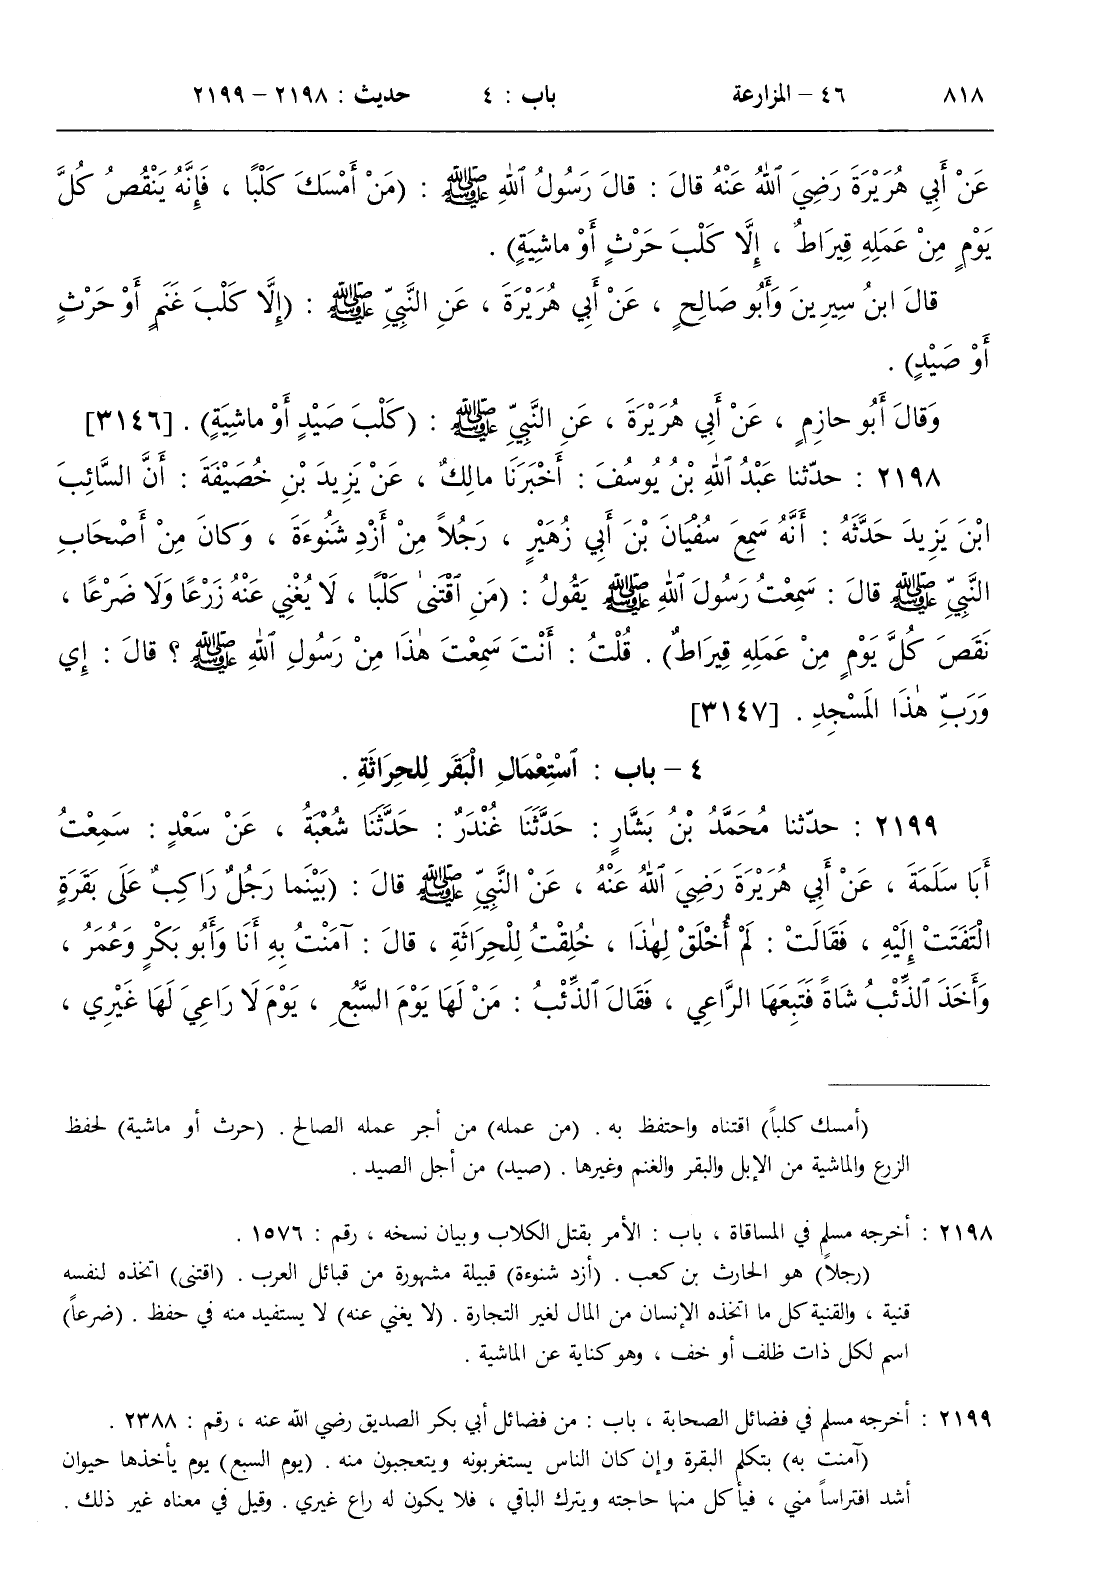 ٨١٨ ٤٦ – المزارعة باب : ٤ حديث : ٢١٩٨ – ٢١٩٩
عَنْ أَبِي هُرَيْرَةَ رَضِيَ ٱللهُ عَنْهُ قالَ : قالَ رَسُولُ ٱللهِ ﷺ : (مَنْ أَمْسَكَ كَلْبًا ، فَإِنَّهُ يَنْقُصُ كُلَّ
يَوْمٍ مِنْ عَمَلِهِ قِيرَاطٌ ، إِلَّا كَلْبَ حَرْثٍ أَوْ ماشِيَةٍ) .
قالَ ابْنُ سِيرِينَ وَأَبُو صَالِحٍ ، عَنْ أَبِي هُرَيْرَةَ ، عَنِ النَّبِيِّ ﷺ : (إِلَّا كَلْبَ غَنَمٍ أَوْ حَرْثٍ
أَوْ صَيْدٍ) .
وَقالَ أَبُو حازِمٍ ، عَنْ أَبِي هُرَيْرَةَ ، عَنِ النَّبِيِّ ﷺ : (كَلْبَ صَيْدٍ أَوْ ماشِيَةٍ) . [٣١٤٦]
٢١٩٨ : حدّثنا عَبْدُ ٱللهِ بْنُ يُوسُفَ : أَخْبَرَنَا مالِكٌ ، عَنْ يَزِيدَ بْنِ خُصَيْفَةَ : أَنَّ السَّائِبَ
ابْنَ يَزِيدَ حَدَّثَهُ : أَنَّهُ سَمِعَ سُفْيَانَ بْنَ أَبِي زُهَيْرٍ ، رَجُلاً مِنْ أَزْدِ شَنُوءَةَ ، وَكانَ مِنْ أَصْحَابِ
النَّبِيِّ ﷺ قالَ : سَمِعْتُ رَسُولَ ٱللهِ ﷺ يَقُولُ : (مَنِ ٱقْتَنىٰ كَلْبًا ، لَا يُغْنِي عَنْهُ زَرْعًا وَلَا ضَرْعًا ،
نَقَصَ كُلَّ يَوْمٍ مِنْ عَمَلِهِ قِيرَاطٌ) . قُلْتُ : أَنْتَ سَمِعْتَ هٰذَا مِنْ رَسُولِ ٱللهِ ﷺ ؟ قالَ : إِي
وَرَبِّ هٰذَا المَسْجِدِ . [٣١٤٧]
٤ – باب : ٱسْتِعْمَالِ الْبَقَرِ لِلحِرَاثَةِ .
٢١٩٩ : حدّثنا مُحَمَّدُ بْنُ بَشَّارٍ : حَدَّثَنَا غُنْدَرٌ : حَدَّثَنَا شُعْبَةُ ، عَنْ سَعْدٍ : سَمِعْتُ
أَبَا سَلَمَةَ ، عَنْ أَبِي هُرَيْرَةَ رَضِيَ ٱللهُ عَنْهُ ، عَنْ النَّبِيِّ ﷺ قالَ : (بَيْنَما رَجُلٌ رَاكِبٌ عَلَى بَقَرَةٍ
الْتَفَتَتْ إِلَيْهِ ، فَقَالَتْ : لَمْ أُخْلَقْ لِهٰذَا ، خُلِقْتُ لِلْحِرَاثَةِ ، قالَ : آمَنْتُ بِهِ أَنَا وَأَبُو بَكْرٍ وَعُمَرُ ،
وَأَخَذَ ٱلذِّئْبُ شَاةً فَتَبِعَهَا الرَّاعِي ، فَقَالَ ٱلذِّئْبُ : مَنْ لَهَا يَوْمَ السَّبُعِ ، يَوْمَ لَا رَاعِيَ لَهَا غَيْرِي ،
(أمسك كلباً) اقتناه واحتفظ به . (من عمله) من أجر عمله الصالح . (حرث أو ماشية) لحفظ
الزرع والماشية من الإبل والبقر والغنم وغيرها . (صيد) من أجل الصيد .
٢١٩٨ : أخرجه مسلم في المساقاة ، باب : الأمر بقتل الكلاب وبيان نسخه ، رقم : ١٥٧٦ .
(رجلاً) هو الحارث بن كعب . (أزد شنوءة) قبيلة مشهورة من قبائل العرب . (اقتنى) اتخذه لنفسه
قنية ، والقنية كل ما اتخذه الإنسان من المال لغير التجارة . (لا يغني عنه) لا يستفيد منه في حفظ . (ضرعاً)
اسم لكل ذات ظلف أو خف ، وهو كناية عن الماشية .
٢١٩٩ : أخرجه مسلم في فضائل الصحابة ، باب : من فضائل أبي بكر الصديق رضي الله عنه ، رقم : ٢٣٨٨ .
(آمنت به) بتكلم البقرة وإن كان الناس يستغربونه ويتعجبون منه . (يوم السبع) يوم يأخذها حيوان
أشد افتراساً مني ، فيأكل منها حاجته ويترك الباقي ، فلا يكون له راع غيري . وقيل في معناه غير ذلك .